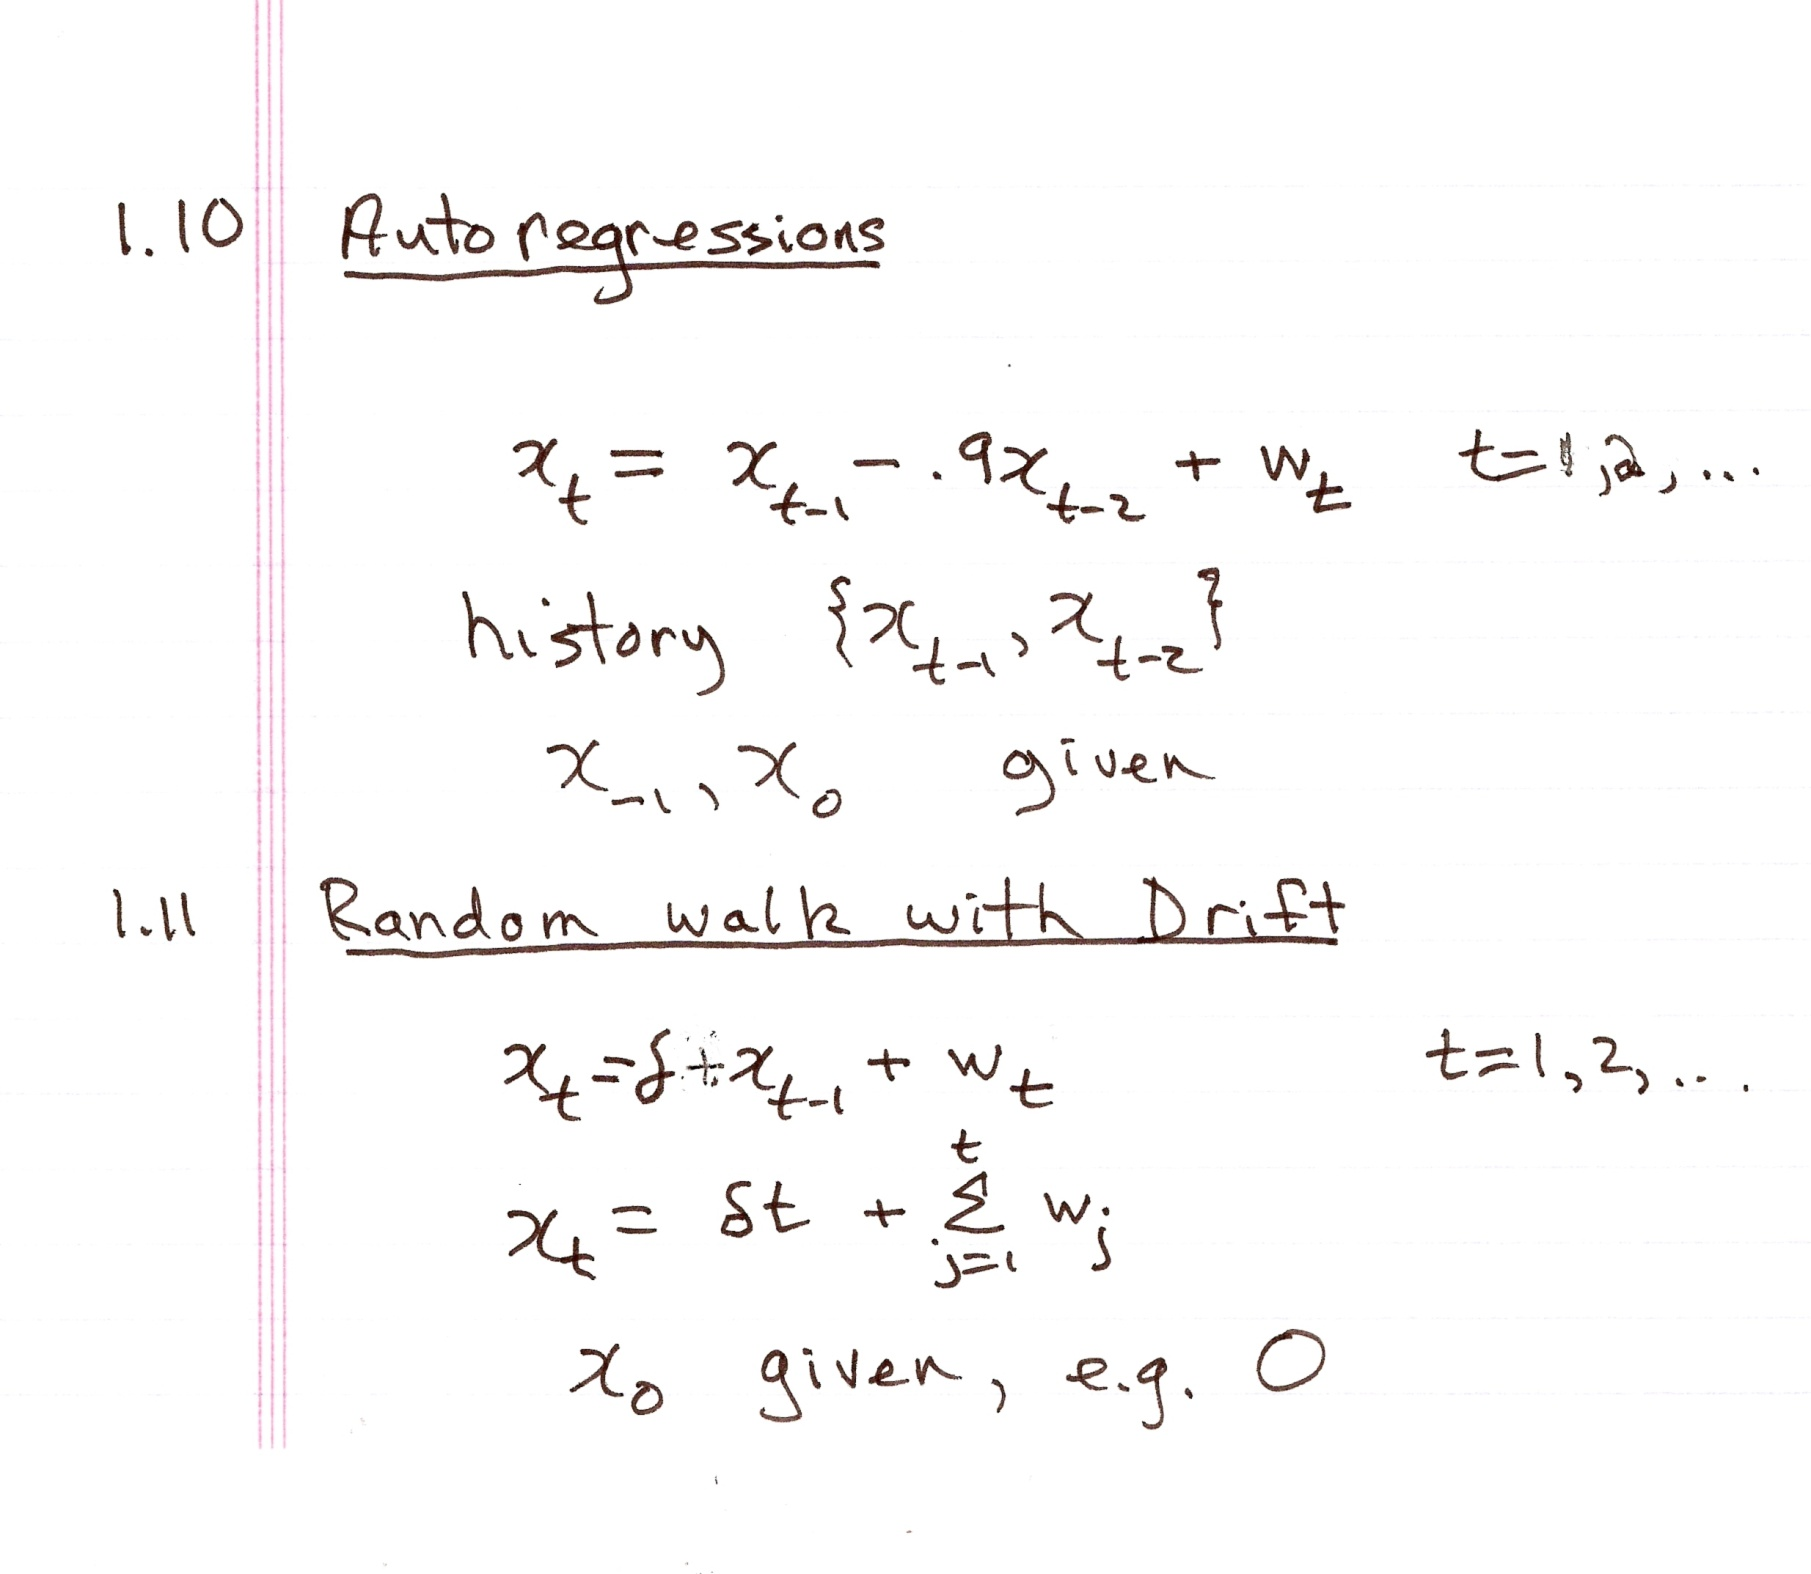 1.10 Autoregressions
x_t = x_{t-1} - .9x_{t-2} + w_t t=1,2,...
history {x_{t-1}, x_{t-2}}
x_{-1}, x_0 given
1.11 Random walk with Drift
x_t = δ + x_{t-1} + w_t t=1,2,...
x_t = δt + Σ_{j=1}^{t} w_j
x_0 given, e.g. 0